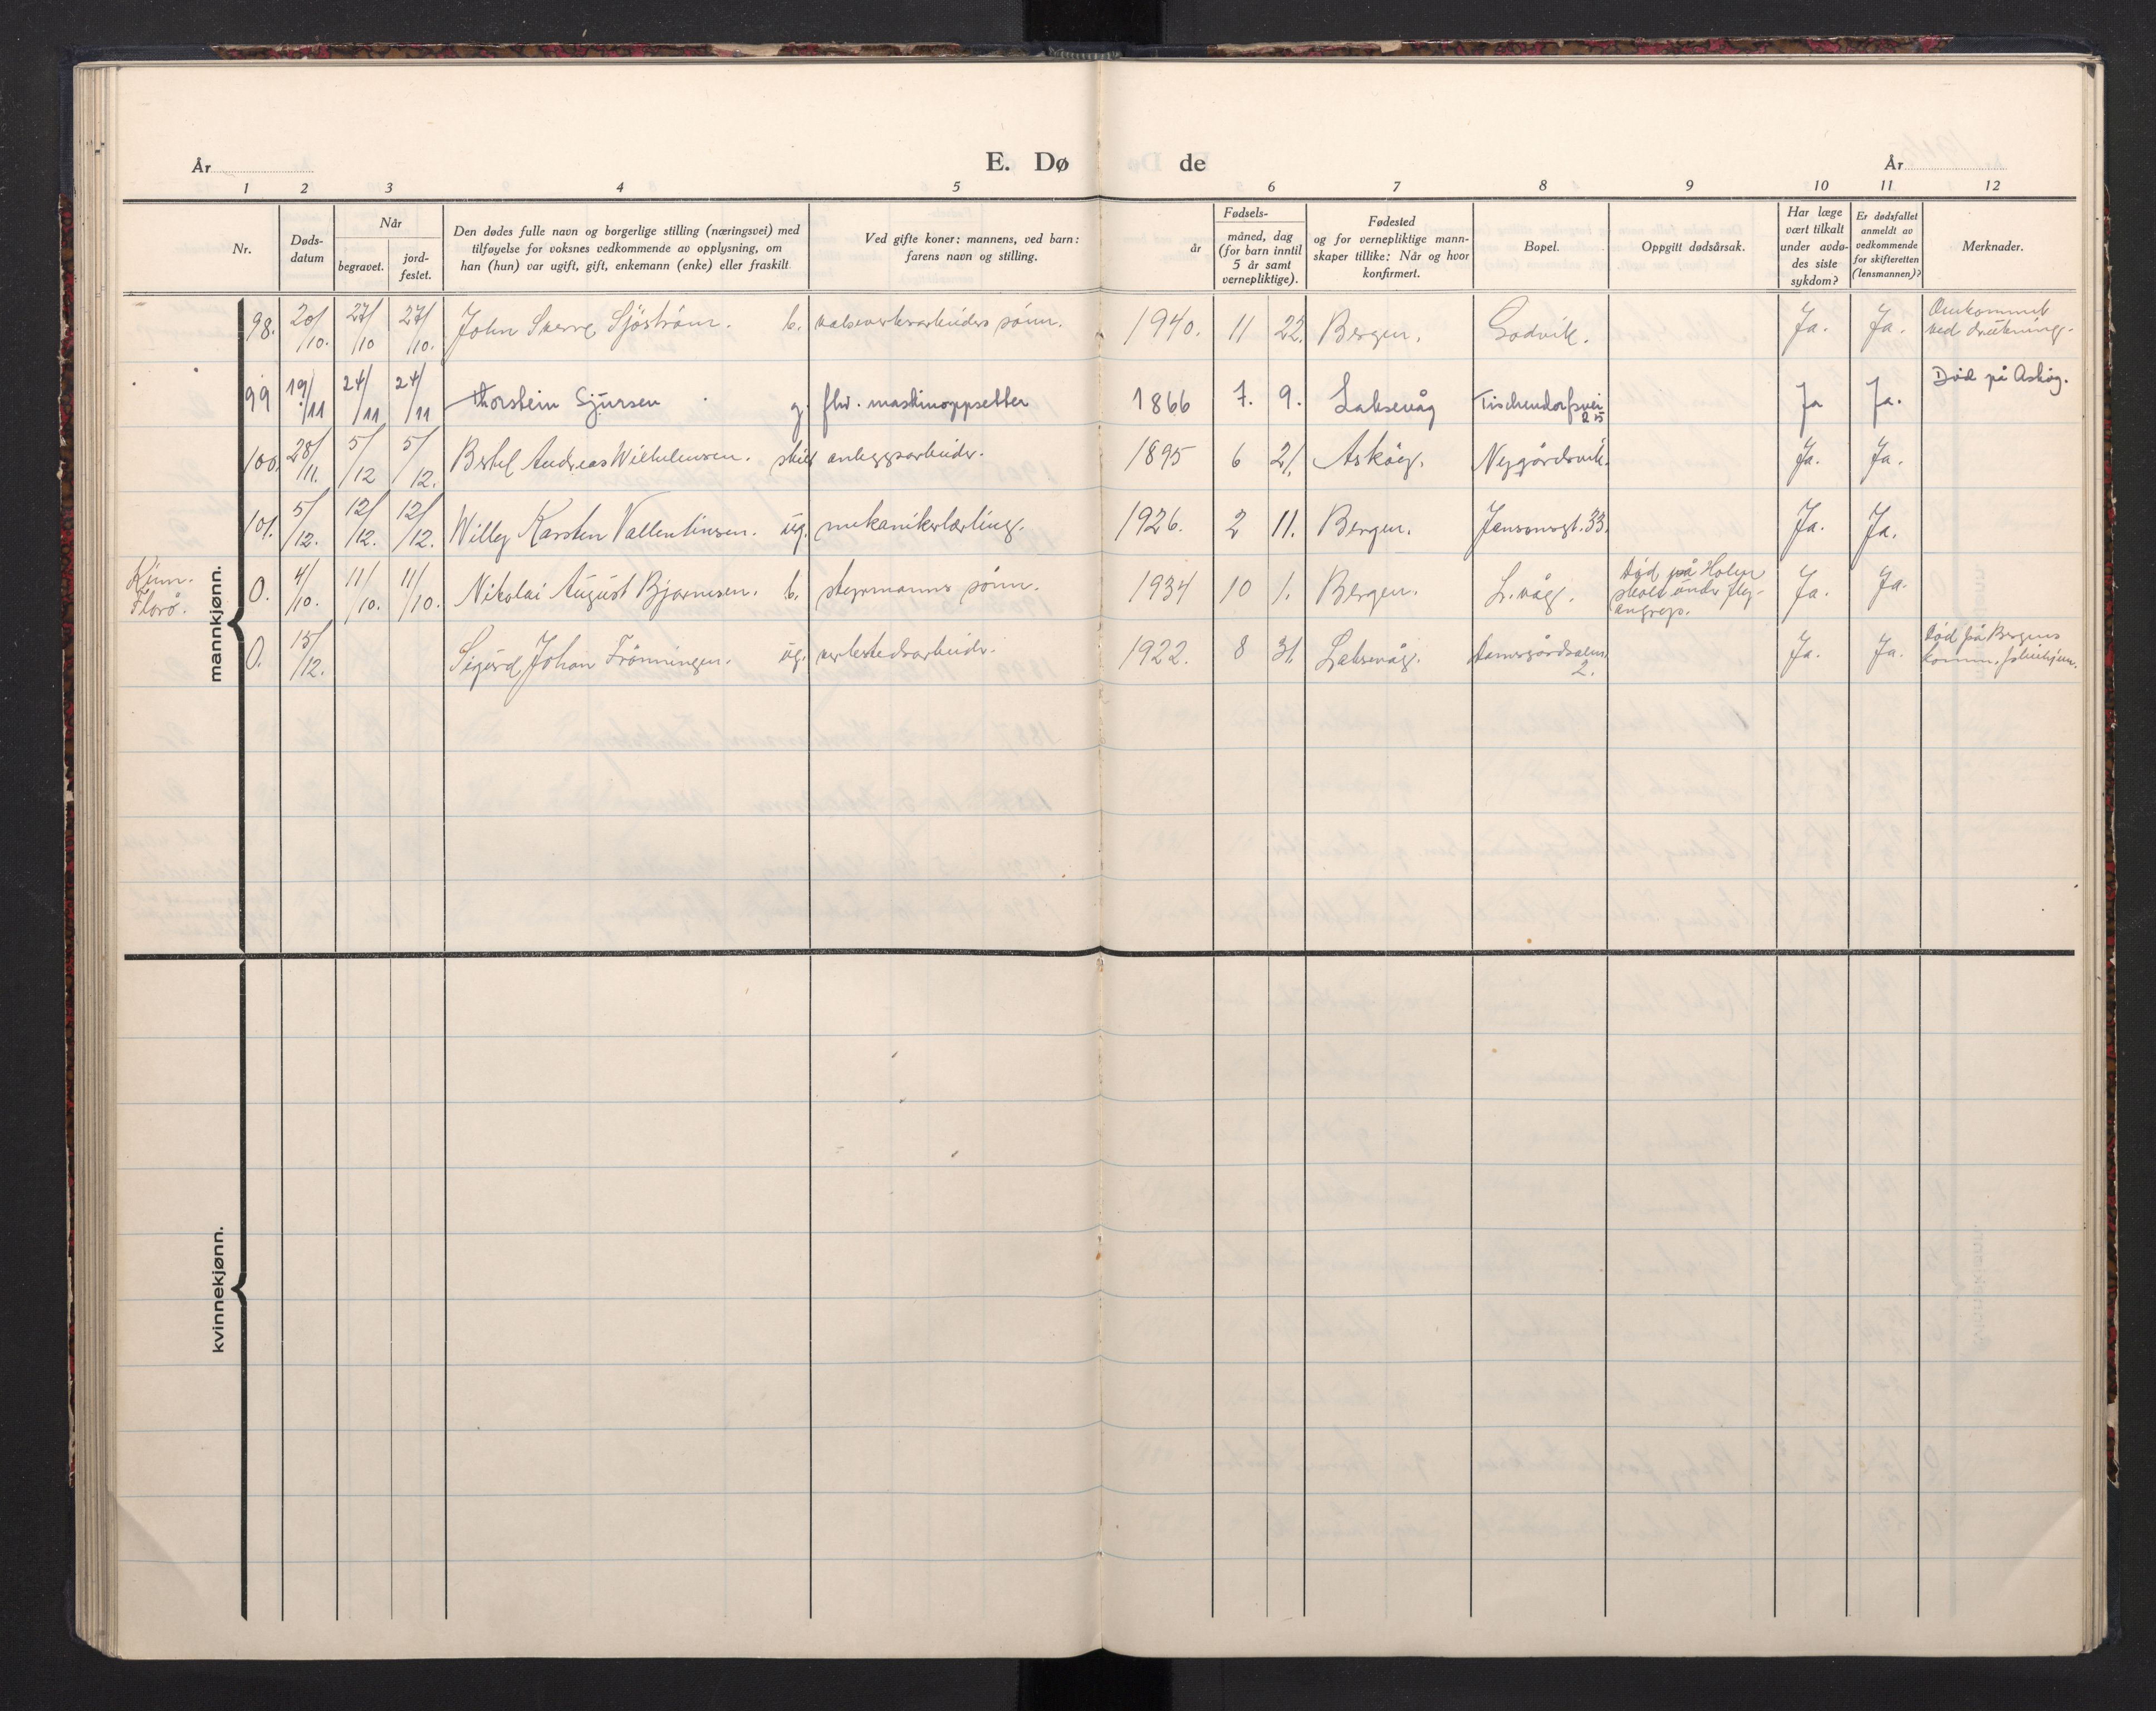 År
E. Dø de
År
1 2 3 4 5 6 7 8 9 10 11 12
Nr.
Døds-
datum
Når
begravet.
jord-
festet.
Den dødes fulle navn og borgerlige stilling (næringsvei) med
tilføyelse for voksnes vedkommende av opplysning, om
han (hun) var ugift, gift, enkemann (enke) eller fraskilt
Ved gifte koner: mannens, ved barn:
farens navn og stilling.
Fødsels-
år
måned, dag
(for barn inntil
5 år samt
vernepliktige).
Fødested
og for vernepliktige mann-
skaper tillike: Når og hvor
konfirmert.
Bopel.
Oppgitt dødsårsak.
Har læge
vært tilkalt
under avdø-
des siste
sykdom?
Er dødsfallet
anmeldt av
vedkommende
for skifteretten
(lensmannen)?
Merknader.
mannkjønn.
98. 20/10. 27/10 27/10. John Sverre Sjöström. b. valseverksarbeiders sønn. 1940. 11 22. Bergen. Godvik. Ja. Ja. Omkommet
ved drukning.
99 19/11 24/11 24/11 Thorstein Sjursen g. fhv. maskinoppsetter 1866 7. 9. Laksevåg Tischendorfsvei
25 Ja Ja. Død på Askøy.
100. 28/11. 5/12 5/12. Bertel Andreas Wilhelmsen. skilt anleggsarbeider. 1895 6 21. Askøy. Nygårdsvik. Ja. Ja.
101. 5/12. 12/12. 12/12. Willy Karsten Vallentinsen. ug. mekanikerlærling. 1926. 2 11. Bergen. Jansonsgt. 33. Ja. Ja.
Kinn.
Florø.
0. 4/10. 11/10. 11/10. Nikolai August Bjørnesen. b. styrmanns sønn. 1934 10 1. Bergen. L.våg. Død på Holen
skole under fly-
angrep. Ja. Ja.
0. 15/12. Sigurd Johan Frönningen. ug. verkstedsarbeider. 1922. 8 31. Laksevåg. Damsgårdsalm.
2. Ja. Ja. Død på Bergens
komm. pleiehjem.
kvinnekjønn.